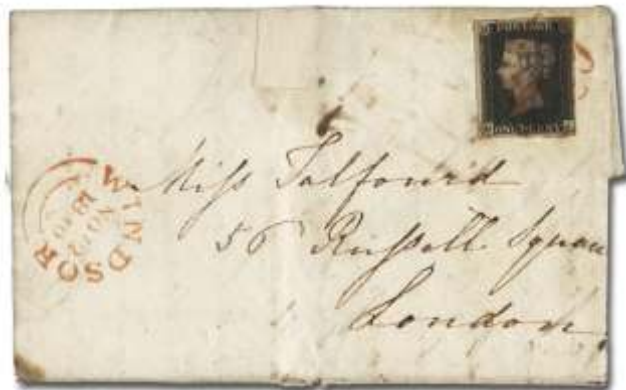 POSTAGE
ONE PENNY
WINDSOR
NO
Miss Talfourd
56 Russell Square
London